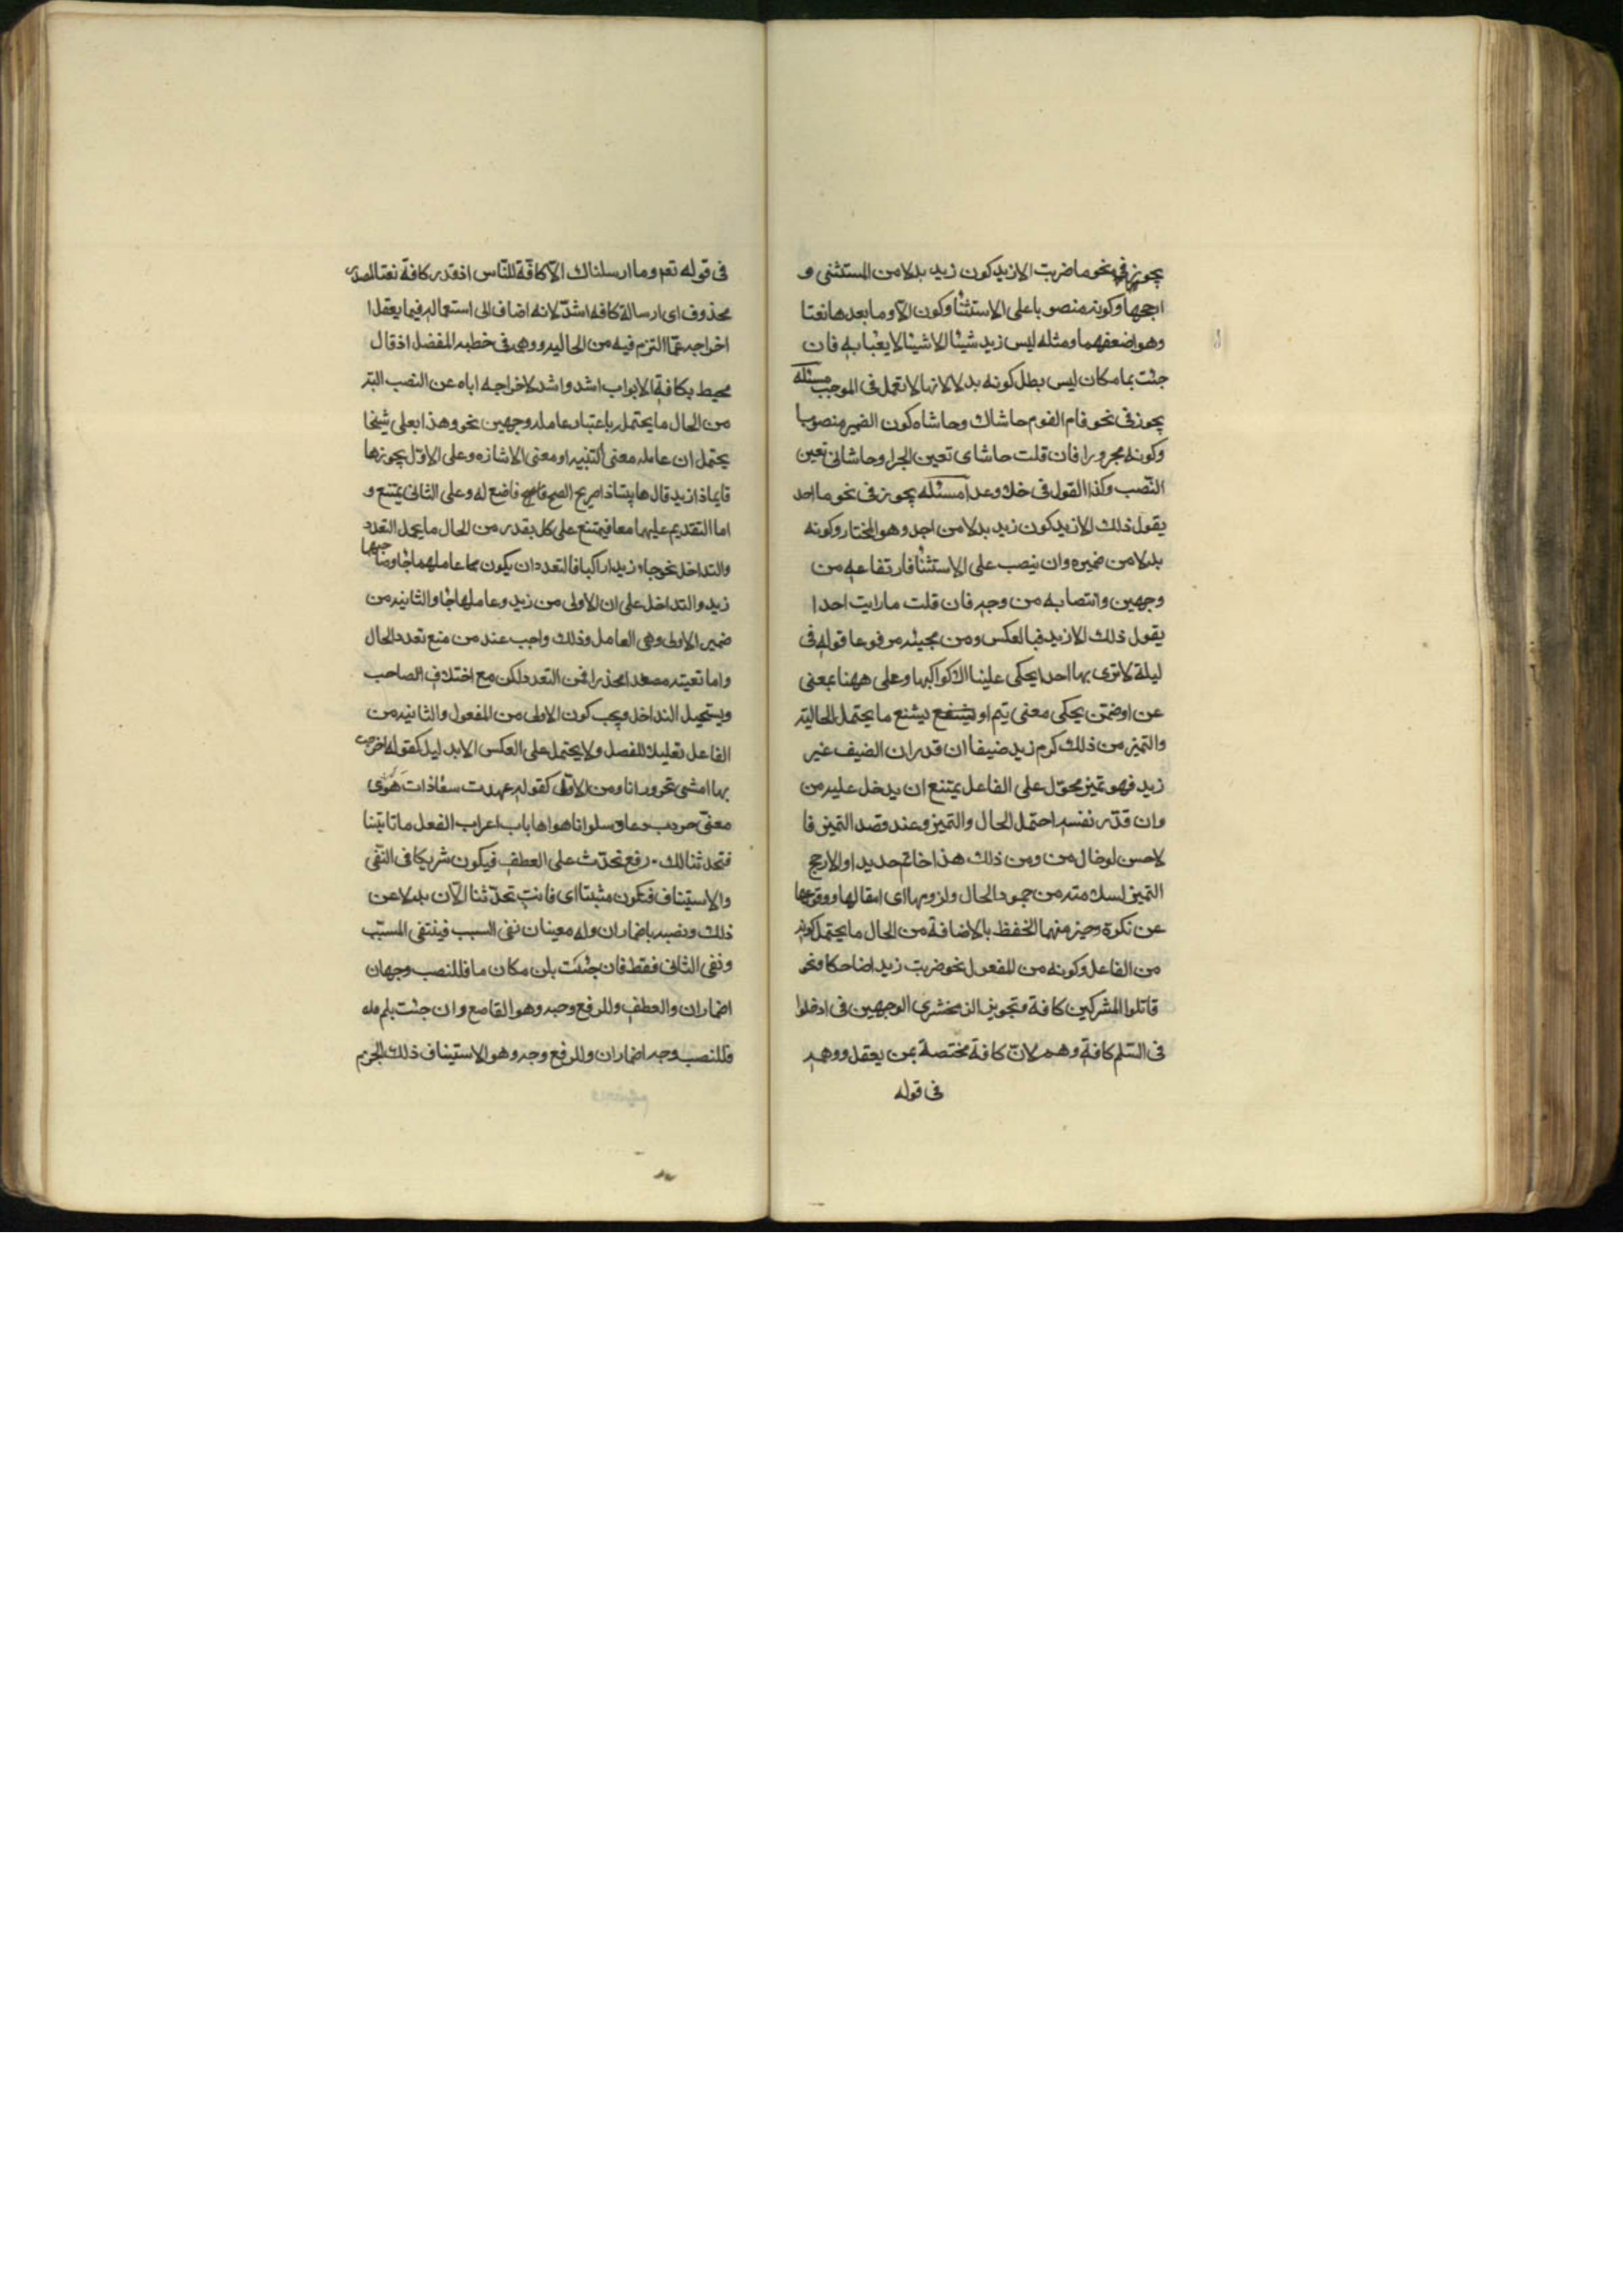 يجوز في نحو ما ضربت الا زيد كون زيد بدلا من المستثنى و
ارجحها وكونه منصوبا على الاستثنا وكون الّا وما بعدها نعتا
وهو اضعفهما ومثله ليس زيد شيئا الا شيئا لا يعبا به فان
جئت بما مكان ليس بطل كونه بدلا لانها لا تعمل فى الموجب مسئله
يجوز فى نحو قام القوم حاشاك وحاشاه كون الضمير منصوبا
وكونه مجرورا فان قلت حاشاى تعين الجر او حاشانى تعين
النّصب وكذا القول فى خلا وعدا مسئله يجوز فى نحو ما احد
يقول ذلك الا زيد كون زيد بدلا من احد وهو المختار وكونه
بدلا من ضميره وان ينصب على الاستثنا فارتفاعه من
وجهين وانتصابه من وجه فان قلت ما رايت احدا
يقول ذلك الا زيد فبالعكس ومن مجيئه مرفوعا قوله فى
ليلة لا ترى بها احدا يحكى علينا الا كواكبها وعلى ههنا بمعنى
عن او ضمّن يحكى معنى ينم او يشنع ما يحتمل الحالية
والتميز من ذلك كرم زيد ضيفا ان قدر ان الضيف غير
زيد فهو تميز محوّل على الفاعل يمتنع ان يدخل عليه من
وان قدّر نفسه احتمل الحال والتميز وعند قصد التميز فا
لاحسن ادخال من ومن ذلك هذا خاتم حديدا والارجح
التميز للسلامة من جمود الحال ولزومها اى انتقالها ووقوعها
عن نكرة وخير منهما الخفظ بالاضافة من الحال ما يحتمل كونه
من الفاعل وكونه من المفعول نحو ضربت زيدا ضاحكا ونحو
قاتلوا المشركين كافة وتجويز الزمخشرى الوجهين فى ادخلوا
فى السّلم كافة وهم لانّ كافة مختصة بمن يعقل ووهمه
فى قوله
فى قوله تعم وما ارسلناك الّا كافّة للنّاس اذ قدر كافة نعتا لمصدر
محذوف اى ارسالة كافه اشدّ لانه اضاف الى استعماله فيما يعقل ا
اخراجه عمّا التزم فيه من الحاليه ووهمه فى خطبه المفضل اذ قال
محيط بكافة الابواب اشد واشد لاخراجه اياه عن النصب البتة
من الحال ما يحتمل باعتبار عامله وجهين نحو وهذا بعلى شيخا
يحتمل ان عامله معنى التنبيه او معنى الاشاره وعلى الاوّل يجوز ها
قايما ذا زيد قال ها بينا ذا صريح النصح فاصغ له وعلى الثانى يمتنع و
اما التقديم عليهما معا فيمتنع على كل بقدر من الحال ما يحمل التعدد
والتداخل نحو جاء زيد راكبا فالتعدد ان يكون عاملهما جا وصاحبهما
زيد والتداخل على ان الاولى من زيد وعاملها جا والثانيه من
ضمير الاولى وهى العامل وذلك واجب عند من منع تعدد الحال
واما لقيته مصعدا منحدرا فمن التعدد لكن مع اختلاف الصاحب
ويستحيل التداخل ويجب كون الاولى من المفعول والثانيه من
الفاعل تقليلا للفصل ولا يحتمل على العكس الا بدليل كقوله خرجت
بها امشى تجر ورانا ومن الاوّل كقوله عهدت سعاد ذات هَوَى
معنّى سلوانا هواها باب اعراب الفعل ما تاتينا
فتحدثنا لك رفع تحدّث على العطف فيكون شريكا فى النّفى
والاستيناف فتكون مثبتا اى فانت تحدّثنا الآن بدلا عن
ذلك ونصبه باضمار ان وله معينان نفى السبب فينتفى المسبّب
ونفى الثانى فقط فان جئت بلن مكان ما فللنصب وجهان
اضمار ان والعطف وللرفع وجه وهو القاصع وان جئت بلم فله
فللنصب وجه اضمار ان وللرفع وجه وهو الاستيناف ذلك الجزم